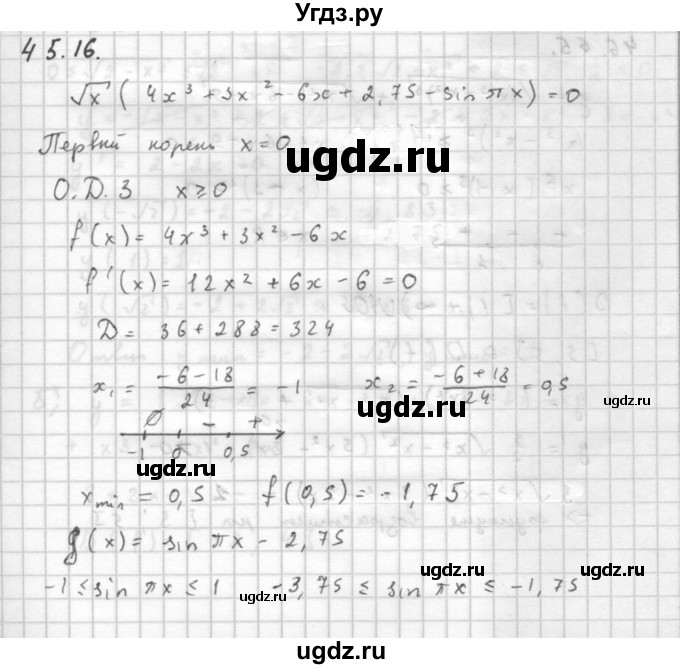 Угдз.ру
45.16.
√x (4x³ + 3x² - 6x + 2,75 - sin πx) = 0
Первый корень x = 0
ugdz.ru
О.Д.З x ≥ 0
f(x) = 4x³ + 3x² - 6x
f'(x) = 12x² + 6x - 6 = 0
D = 36 + 288 = 324
x₁ = (-6 - 18)/24 = -1 x₂ = (-6 + 18)/24 = 0,5
ugdz.ru
ugdz.ru
- +
-1 0 0,5
ugdz.ru
x min = 0,5 f(0,5) = -1,75
g(x) = sin πx - 2,75
-1 ≤ sin πx ≤ 1 -3,75 ≤ sin πx ≤ -1,75
ugdz.ru
ugdz.ru
ugdz.ru